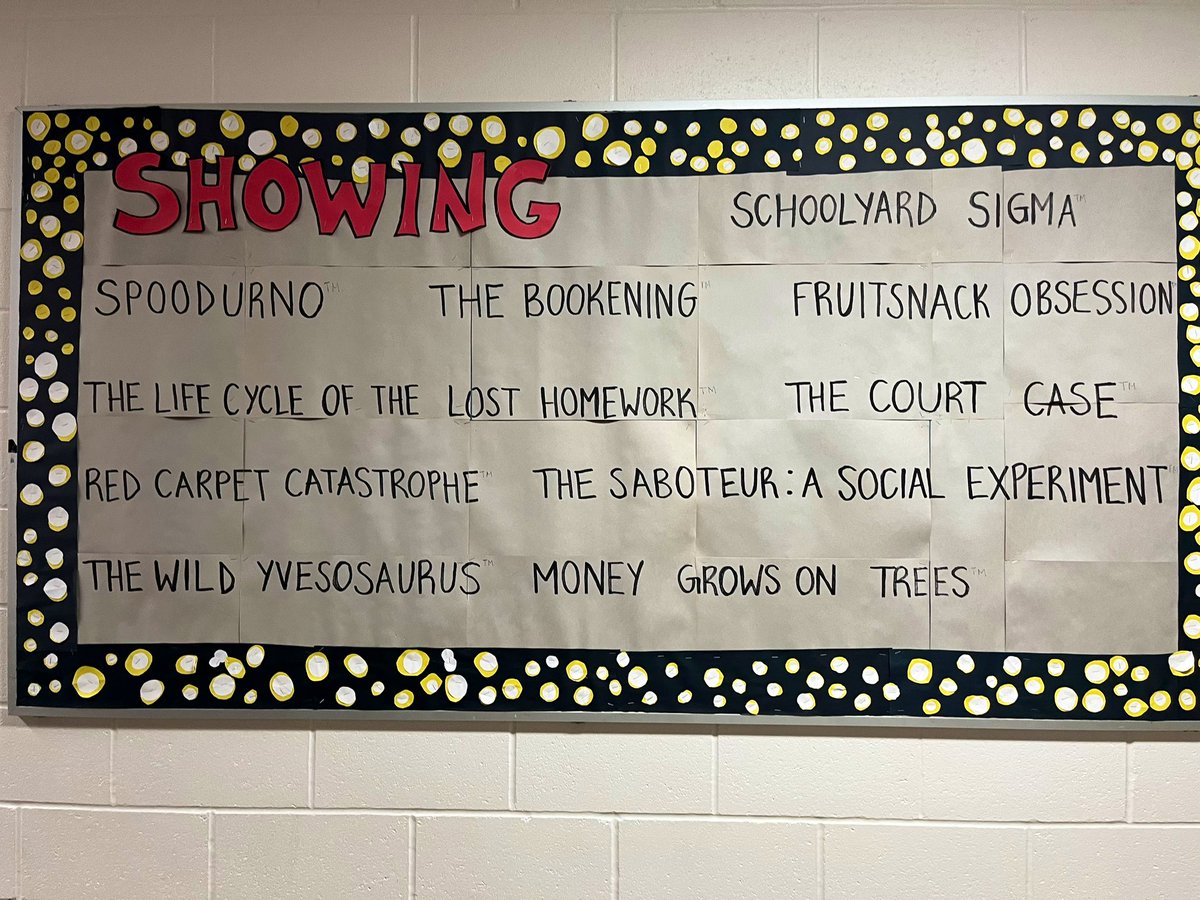 SHOWING SCHOOLYARD SIGMA™
SPOODURNO™ THE BOOKENING™ FRUITSNACK OBSESSION
THE LIFE CYCLE OF THE LOST HOMEWORK™ THE COURT CASE™
RED CARPET CATASTROPHE™ THE SABOTEUR: A SOCIAL EXPERIMENT™
THE WILD YVESOSAURUS™ MONEY GROWS ON TREES™